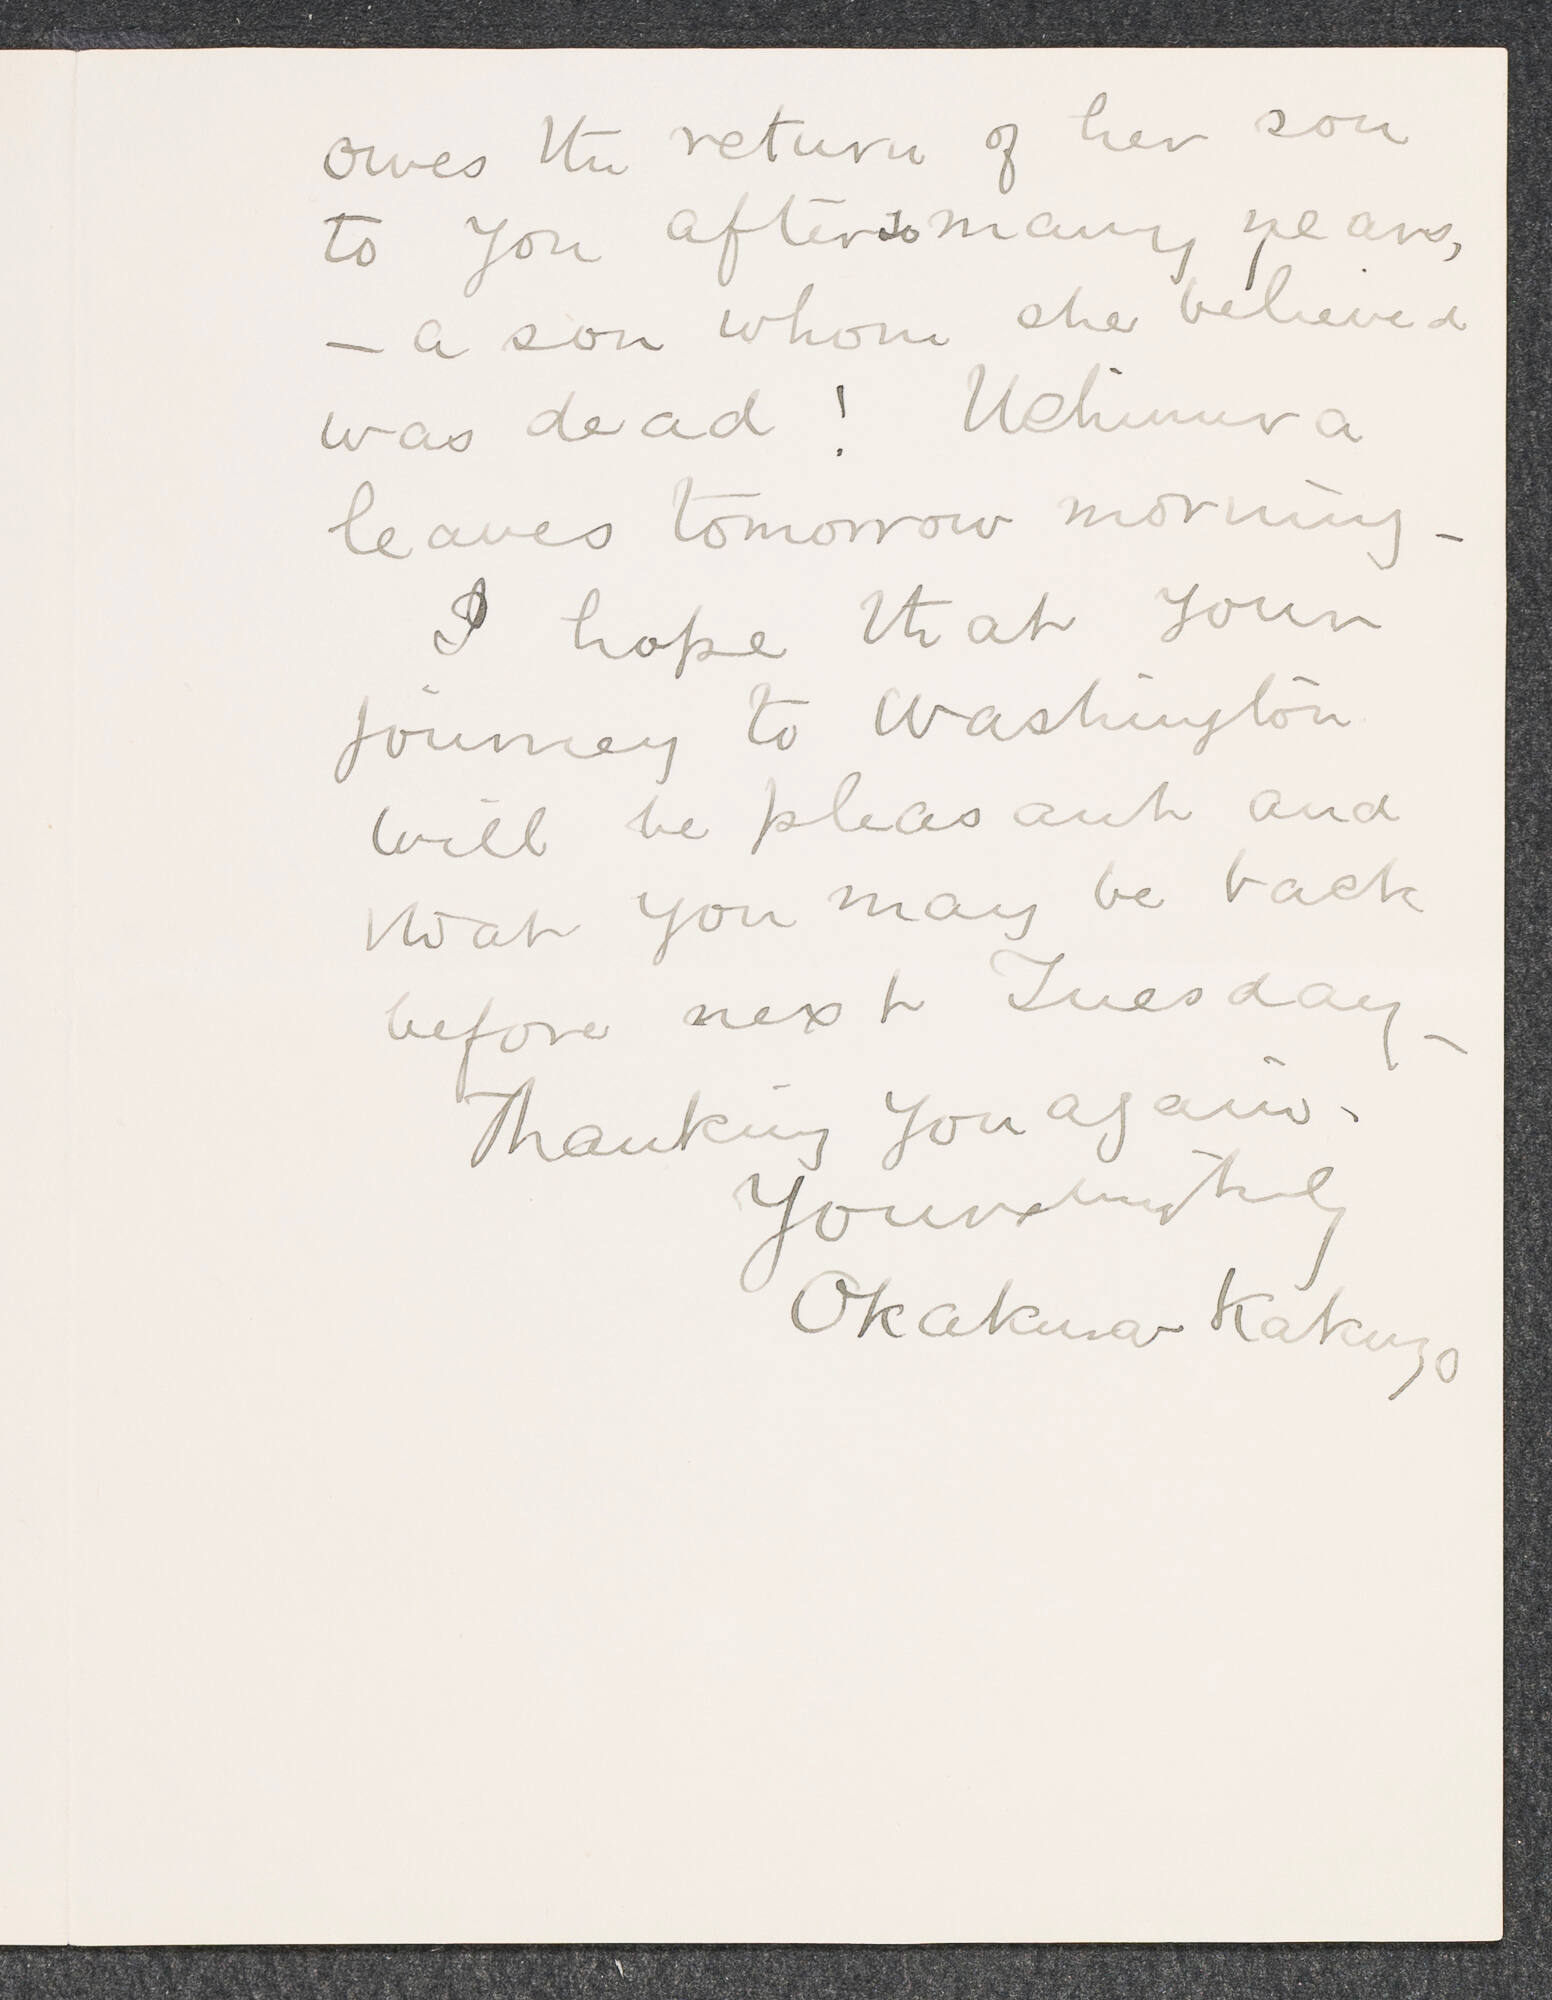 owes the return of her son
to you after so many years,
— a son whom she believed
was dead! Uchimura
leaves tomorrow morning —
I hope that your
journey to Washington
will be pleasant and
that you may be back
before next Tuesday —
Thanking you again.
Yours very truly
Okakura-Kakuzo